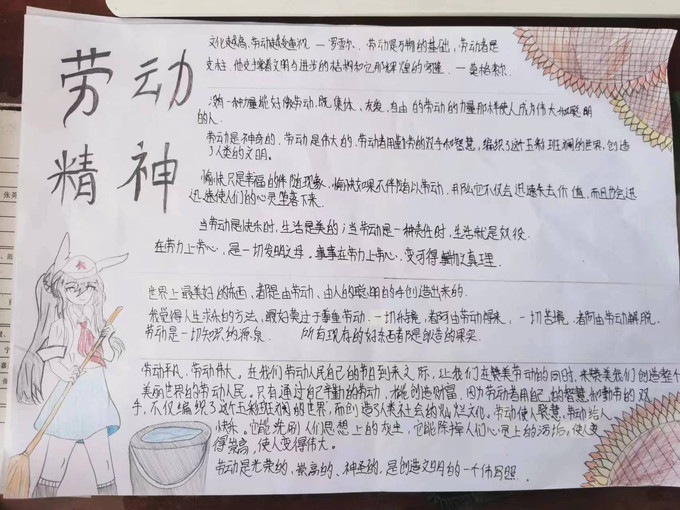 劳动
精神
文化越高,劳动越被重视 — 罗雪尔. 劳动是万物的基础,劳动者是
支柱,他支撑着文明与进步的结构和它那辉煌的穹隆. — 英格索尔.
没有一种力量能好像劳动,既集体、友爱、自由的劳动的力量那样使人成为伟大和聪明
的人.
劳动是神奇的,劳动是伟大的.劳动者用勤劳的双手和智慧,编织了这个五彩班斓的世界,创造
了人类的文明。
愉快只是幸福的伴随现象,愉快如果不伴随以劳动,那么它不仅会迅速失去价值,而且也会迅
迅速使人们的心灵堕落下来.
当劳动是快乐时,生活是美的;当劳动是一种责任时,生活就是奴役.
在劳力上劳心,是一切发明之母.事事在劳力上劳心,变可得事物之真理.
世界上最美好的东西,都是由劳动、由人的聪明的手创造出来的.
我觉得人生求乐的方法,最好莫过于尊重劳动.一切乐境,都可由劳动得来,一切苦境,都可由劳动解脱.
劳动是一切知识的源泉. 所有现存的好东西都是创造的果实.
劳动平凡,劳动伟大。在我们劳动人民自己的节日到来之际,让我们在赞美劳动的同时,来赞美我们创造整个
美丽世界的劳动人民。只有通过自己辛勤的劳动,才能创造财富,因为劳动者用自己的智慧和勤劳的双
手,不仅编织了这个五彩班斓的世界,而创造了人类社会的灿烂文化。劳动使人聪慧,劳动给人
快乐。它能洗刷人们思想上的灰尘,它能除掉人们心灵上的污垢,使人变
得崇高,使人变得伟大。
劳动是光荣的、崇高的、神圣的,是创造文明的一个伟